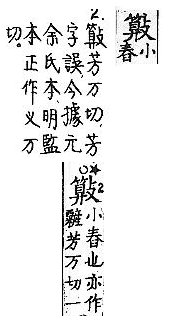 小
春
2. 芳万切，芳
字誤，今據元
余氏本、明監
本正作义万
切。
○★ 2 小春也亦作
芳万切一